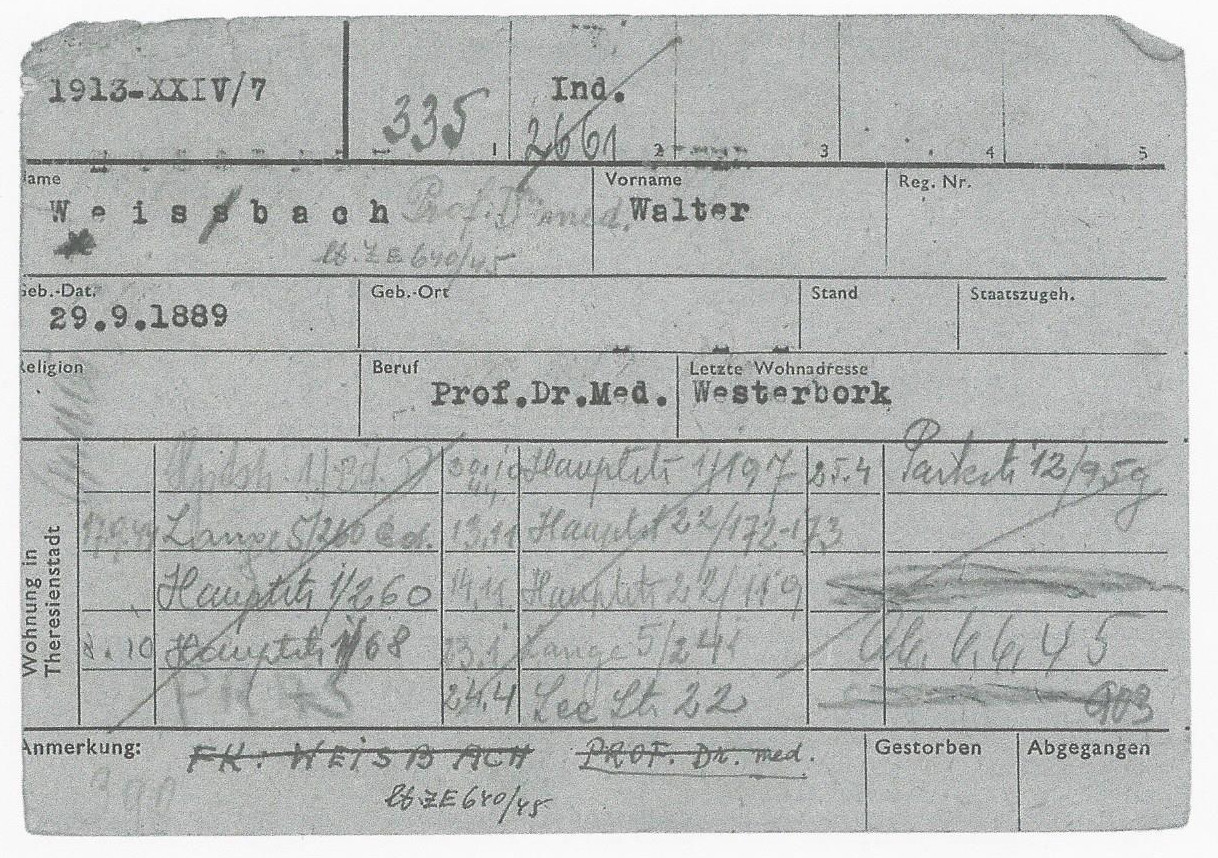 1913-XXIV/7 335 Ind.
2661
1 2 3 4 5
ame Vorname Reg. Nr.
Weissbach Prof. Dr. med. Walter
lt. ZE 640/45
eb.-Dat. Geb.-Ort Stand Staatszugeh.
29.9.1889
eligion Beruf Letzte Wohnadresse
Prof.Dr.Med. Westerbork
Wohnung in
Theresienstadt
Hauptstr 1/197 25.4 Parkstr 12/959
Lange 5/260 13.11 Hauptst 22/172-173
Hauptstr 1/260 14.11 Hauptstr 22/119
10 Hauptstr 1/68 Lange 5/24
24.4 See Str. 22 Ab. 6.6.45
903
Anmerkung: FK: WEISBACH PROF. Dr. med. Gestorben Abgegangen
lt. ZE 640/45